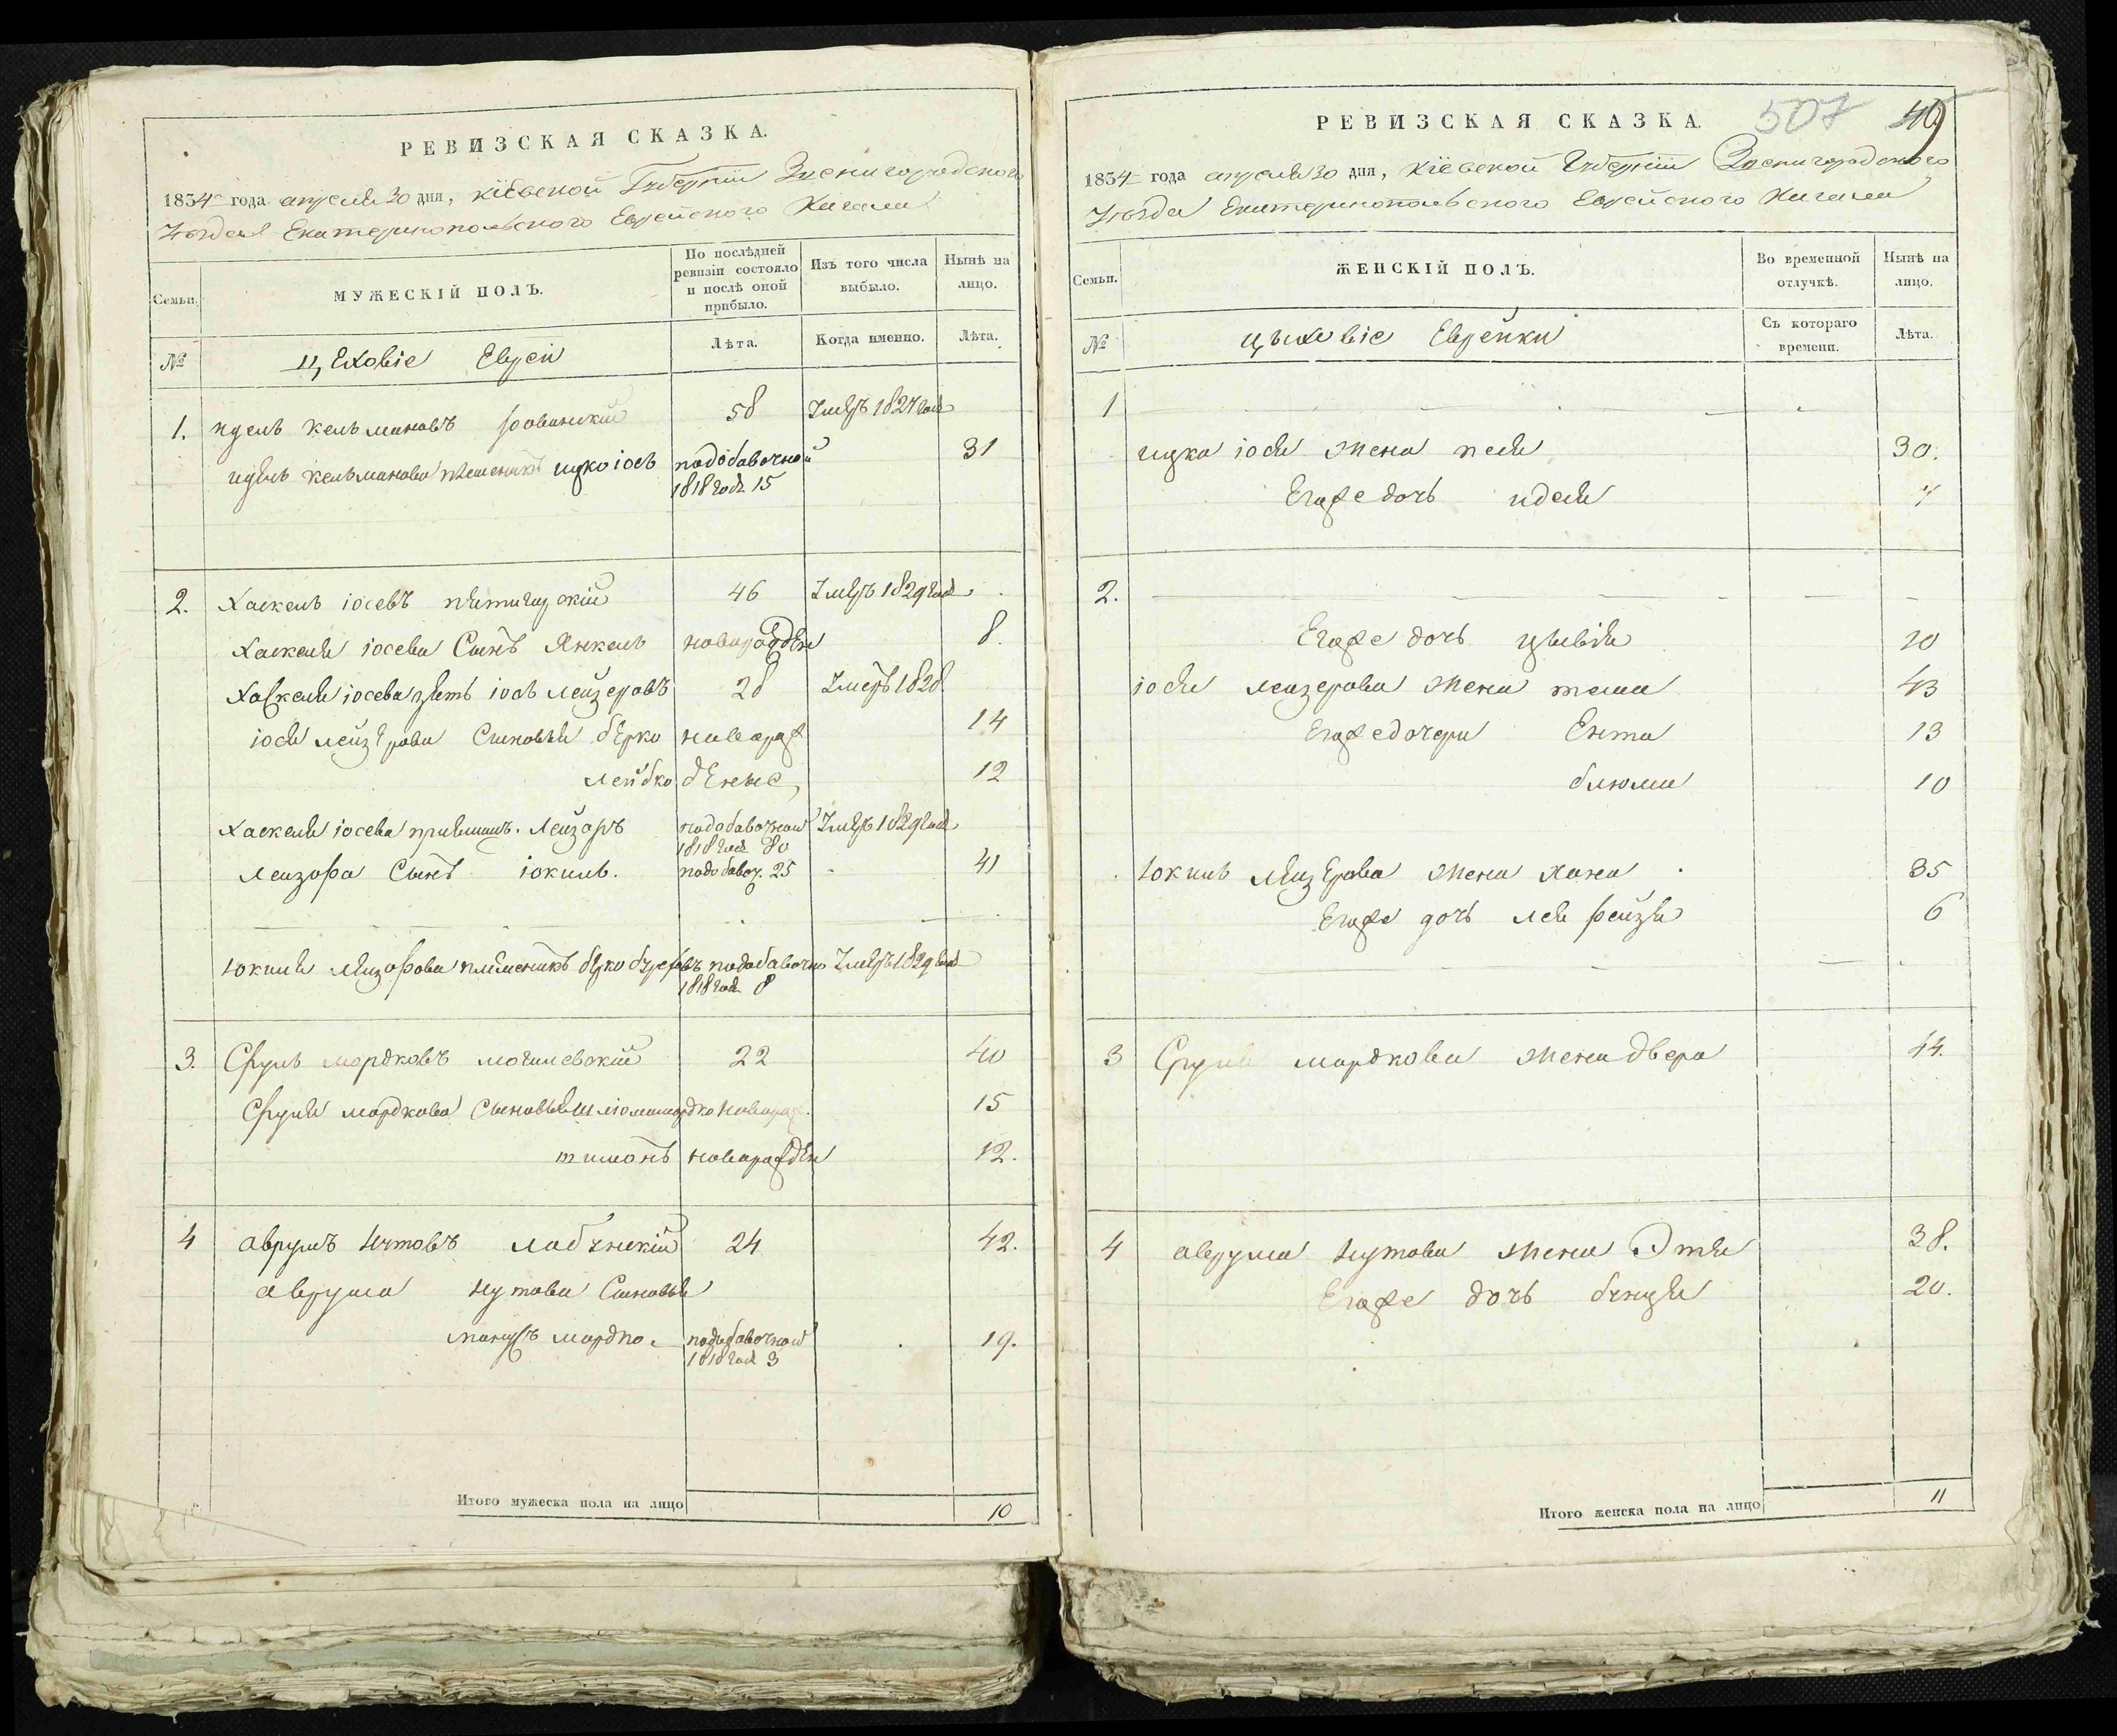 РЕВИЗСКАЯ СКАЗКА.
1834 года апреля 30 дня, Кіевской Губерніи Звенигородского
Уезда Екатеринопольского Еврейского Кагала
Семьи.
МУЖЕСКІЙ ПОЛЪ.
По послѣдней ревизіи состояло и послѣ оной прибыло.
Изъ того числа выбыло.
Нынѣ на лицо.
№
Цеховіе Евреи
Лѣта.
Когда именно.
Лѣта.
1. Идель Кельмановъ 58 Умеръ 1827 года
Иделя Кельманова племеникъ Ицко іось подобавочной 1818 года 15 31
2. Хаскель іосевъ 46 Умеръ 1829 года
Хаскеля іосева Сынъ Янкель новорожден 8.
Хаскеля іосева зять іось Лейзеровъ 28 Умеръ 1828.
іося лейзерова Сыновья берко новорож 14
лейбко денные 12
Хаскеля іосева Лейзоръ подобавочной 1818 года 80 Умеръ 1829 года
Лейзора Сынъ іокиль. подобавоч. 25 41
Юкиля Лейзорова племеникъ берко подобавочно 1818 года 8 Умеръ 1829 года
3. Сруль мордковъ могилевскій 22 40
Сруля мордкова Сыновья шліома мордко новорож. 15
новорожден 12.
4 аврумъ Нутовъ 24 42.
аврума Нутова Сыновья
мордко подобавочной 1818 года 3 19.
Итого мужеска пола на лицо 10
РЕВИЗСКАЯ СКАЗКА.
507 49
1834 года апреля 30 дня, Кіевской Губерніи Звенигородского
Уезда Екатеринопольского Еврейского Кагала
Семьи.
ЖЕНСКІЙ ПОЛЪ.
Во временной отлучкѣ.
Нынѣ на лицо.
№
Цеховіе Еврейки
Съ котораго времени.
Лѣта.
1
ицка іося жена песя 30.
Егоже дочь идося 7
2.
Егоже дочь цывія 20
іося лейзерова жена 43
Егоже дочери Ента 13
блюма 10
Юкиль лейзерова жена хана 35
Егоже дочь лея рейзя 6
3 Сруля мордкова жена двера 44.
4 аврума Нутова жена Этя 38.
Егоже дочь 20.
Итого женска пола на лицо 11